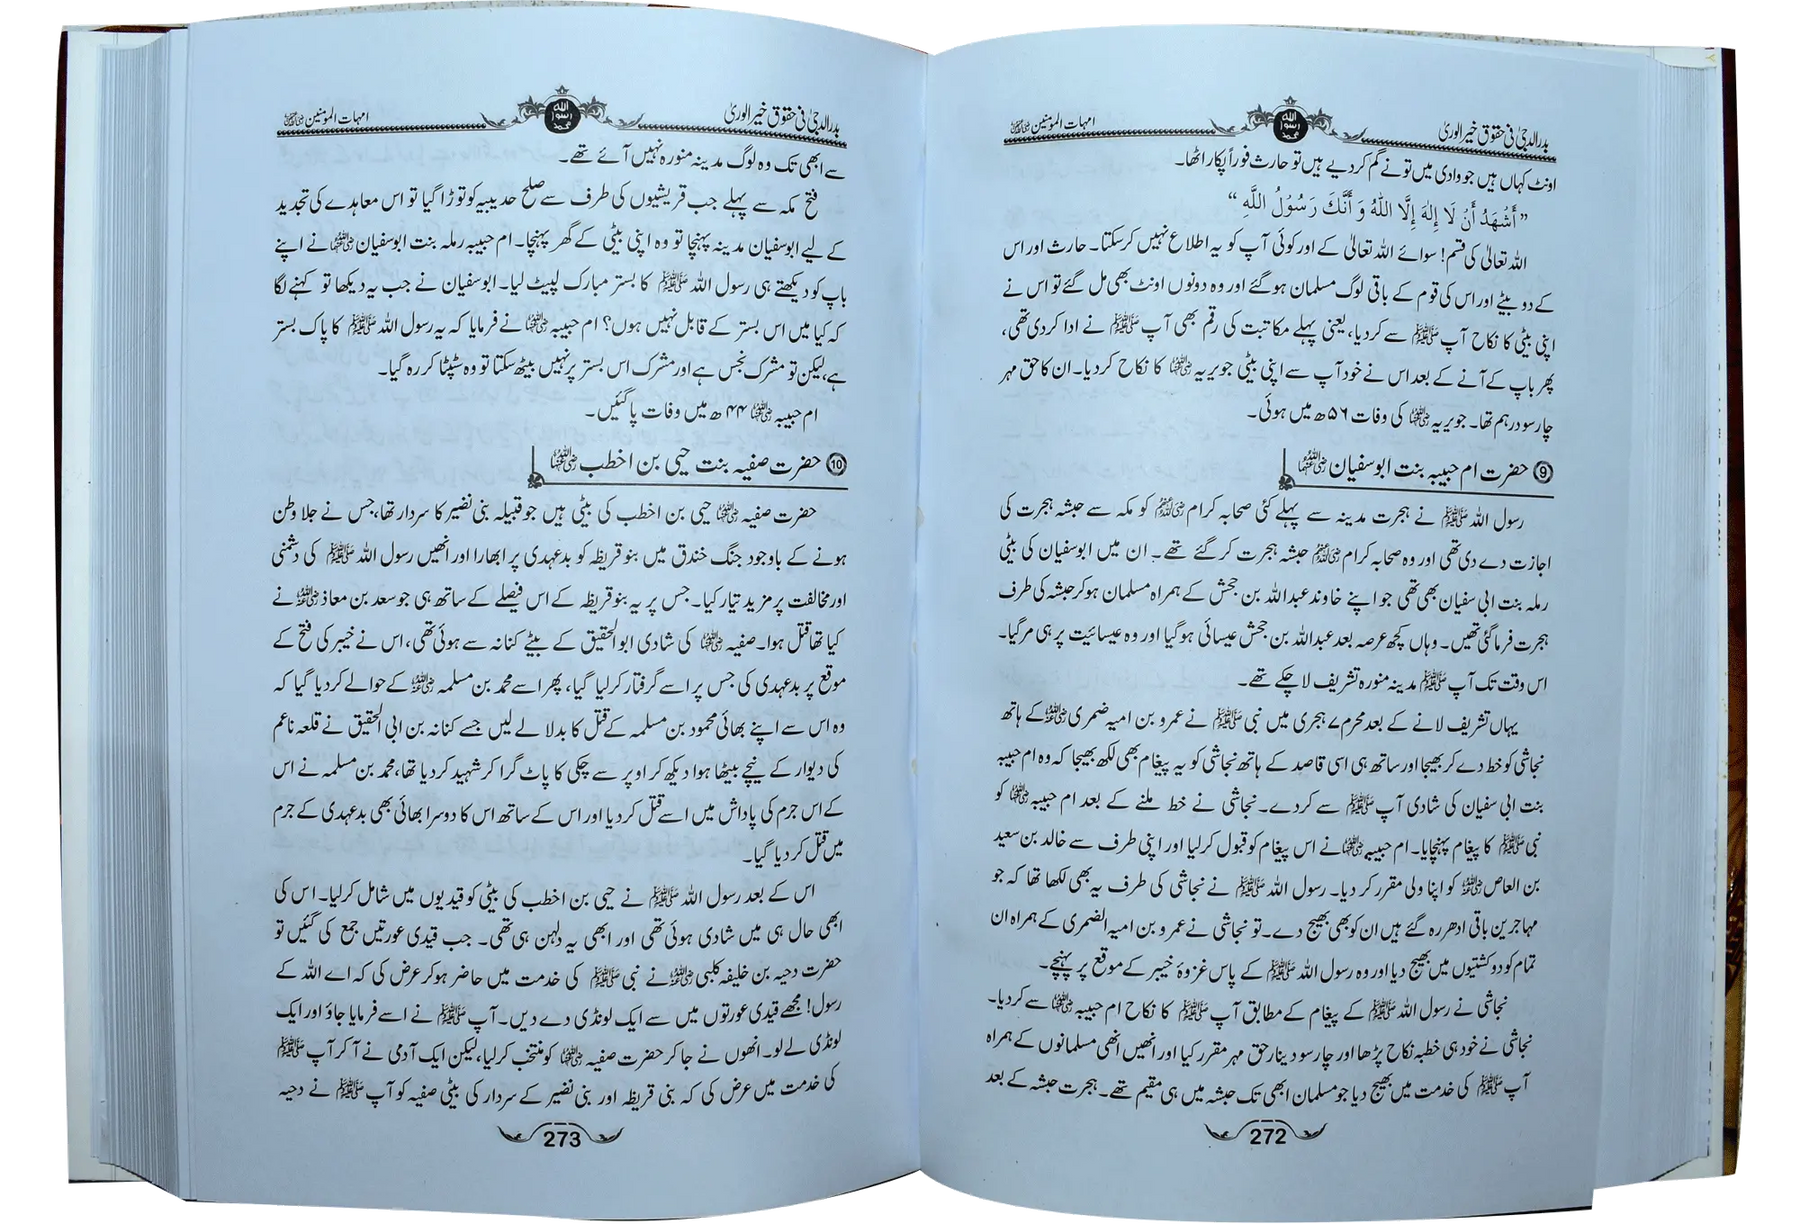 بدر الدجیٰ فی حقوق خیر الوریٰ
امہات المؤمنین رضی اللہ عنہن
اونٹ کہاں ہیں جو وادی میں تو نے گم کر دیے ہیں تو حارث فوراً پکار اٹھا۔
”أَشْهَدُ أَنْ لَا إِلٰهَ إِلَّا اللهُ وَ أَنَّكَ رَسُوْلُ اللَّهِ“
اللہ تعالیٰ کی قسم! سوائے اللہ تعالیٰ کے اور کوئی آپ کو یہ اطلاع نہیں کر سکتا۔ حارث اور اس
کے دو بیٹے اور اس کی قوم کے باقی لوگ مسلمان ہو گئے اور وہ دونوں اونٹ بھی مل گئے تو اس نے
اپنی بیٹی کا نکاح آپ ﷺ سے کر دیا، یعنی پہلے مکاتبت کی رقم بھی آپ ﷺ نے ادا کر دی تھی،
پھر باپ کے آنے کے بعد اس نے خود آپ سے اپنی بیٹی جویریہ رضی اللہ عنہا کا نکاح کر دیا۔ ان کا حق مہر
چار سو درہم تھا۔ جویریہ رضی اللہ عنہا کی وفات ۵۶ھ میں ہوئی۔
⑨ حضرت ام حبیبہ بنت ابوسفیان رضی اللہ عنہا
رسول اللہ ﷺ نے ہجرت مدینہ سے پہلے کئی صحابہ کرام رضی اللہ عنہم کو مکہ سے حبشہ ہجرت کی
اجازت دے دی تھی اور وہ صحابہ کرام رضی اللہ عنہم حبشہ ہجرت کر گئے تھے۔ ان میں ابوسفیان کی بیٹی
رملہ بنت ابی سفیان بھی تھی جو اپنے خاوند عبداللہ بن جحش کے ہمراہ مسلمان ہو کر حبشہ کی طرف
ہجرت فرما گئی تھیں۔ وہاں کچھ عرصہ بعد عبداللہ بن جحش عیسائی ہو گیا اور وہ عیسائیت پر ہی مر گیا۔
اس وقت تک آپ ﷺ مدینہ منورہ تشریف لا چکے تھے۔
یہاں تشریف لانے کے بعد محرم ۷ ہجری میں نبی ﷺ نے عمرو بن امیہ ضمری رضی اللہ عنہ کے ہاتھ
نجاشی کو خط دے کر بھیجا اور ساتھ ہی اسی قاصد کے ہاتھ نجاشی کو یہ پیغام بھی لکھ بھیجا کہ وہ ام حبیبہ
بنت ابی سفیان کی شادی آپ ﷺ سے کر دے۔ نجاشی نے خط ملنے کے بعد ام حبیبہ رضی اللہ عنہا کو
نبی ﷺ کا پیغام پہنچایا۔ ام حبیبہ رضی اللہ عنہا نے اس پیغام کو قبول کر لیا اور اپنی طرف سے خالد بن سعید
بن العاص رضی اللہ عنہ کو اپنا ولی مقرر کر دیا۔ رسول اللہ ﷺ نے نجاشی کی طرف یہ بھی لکھا تھا کہ جو
مہاجرین باقی ادھر رہ گئے ہیں ان کو بھی بھیج دے۔ تو نجاشی نے عمرو بن امیہ الضمری کے ہمراہ ان
تمام کو دو کشتیوں میں بھیج دیا اور وہ رسول اللہ ﷺ کے پاس غزوۂ خیبر کے موقع پر پہنچے۔
نجاشی نے رسول اللہ ﷺ کے پیغام کے مطابق آپ ﷺ کا نکاح ام حبیبہ رضی اللہ عنہا سے کر دیا۔
نجاشی نے خود ہی خطبہ نکاح پڑھا اور چار سو دینار حق مہر مقرر کیا اور انھیں انھی مسلمانوں کے ہمراہ
آپ ﷺ کی خدمت میں بھیج دیا جو مسلمان ابھی تک حبشہ میں ہی مقیم تھے۔ ہجرت حبشہ کے بعد
272
بدر الدجیٰ فی حقوق خیر الوریٰ
امہات المؤمنین رضی اللہ عنہن
سے ابھی تک وہ لوگ مدینہ منورہ نہیں آئے تھے۔
فتح مکہ سے پہلے جب قریشیوں کی طرف سے صلح حدیبیہ کو توڑا گیا تو اس معاہدے کی تجدید
کے لیے ابوسفیان مدینہ پہنچا تو وہ اپنی بیٹی کے گھر پہنچا۔ ام حبیبہ رملہ بنت ابوسفیان رضی اللہ عنہا نے اپنے
باپ کو دیکھتے ہی رسول اللہ ﷺ کا بستر مبارک لپیٹ لیا۔ ابوسفیان نے جب یہ دیکھا تو کہنے لگا
کہ کیا میں اس بستر کے قابل نہیں ہوں؟ ام حبیبہ رضی اللہ عنہا نے فرمایا کہ یہ رسول اللہ ﷺ کا پاک بستر
ہے، لیکن تو مشرک نجس ہے اور مشرک اس بستر پر نہیں بیٹھ سکتا تو وہ سٹپٹا کر رہ گیا۔
ام حبیبہ رضی اللہ عنہا ۴۴ھ میں وفات پا گئیں۔
⑩ حضرت صفیہ بنت حیی بن اخطب رضی اللہ عنہا
حضرت صفیہ رضی اللہ عنہا حیی بن اخطب کی بیٹی ہیں جو قبیلہ بنی نضیر کا سردار تھا، جس نے جلا وطن
ہونے کے باوجود جنگ خندق میں بنو قریظہ کو بدعہدی پر ابھارا اور انھیں رسول اللہ ﷺ کی دشمنی
اور مخالفت پر مزید تیار کیا۔ جس پر یہ بنو قریظہ کے اس فیصلے کے ساتھ ہی جو سعد بن معاذ رضی اللہ عنہ نے
کیا تھا قتل ہوا۔ صفیہ رضی اللہ عنہا کی شادی ابوالحقیق کے بیٹے کنانہ سے ہوئی تھی، اس نے خیبر کی فتح کے
موقع پر بدعہدی کی جس پر اسے گرفتار کر لیا گیا، پھر اسے محمد بن مسلمہ رضی اللہ عنہ کے حوالے کر دیا گیا کہ
وہ اس سے اپنے بھائی محمود بن مسلمہ کے قتل کا بدلا لے لیں جسے کنانہ بن ابی الحقیق نے قلعہ ناعم
کی دیوار کے نیچے بیٹھا ہوا دیکھ کر اوپر سے چکی کا پاٹ گرا کر شہید کر دیا تھا، محمد بن مسلمہ نے اس
کے اس جرم کی پاداش میں اسے قتل کر دیا اور اس کے ساتھ اس کا دوسرا بھائی بھی بدعہدی کے جرم
میں قتل کر دیا گیا۔
اس کے بعد رسول اللہ ﷺ نے حیی بن اخطب کی بیٹی کو قیدیوں میں شامل کر لیا۔ اس کی
ابھی حال ہی میں شادی ہوئی تھی اور ابھی یہ دلہن ہی تھی۔ جب قیدی عورتیں جمع کی گئیں تو
حضرت دحیہ بن خلیفہ کلبی رضی اللہ عنہ نے نبی ﷺ کی خدمت میں حاضر ہو کر عرض کی کہ اے اللہ کے
رسول! مجھے قیدی عورتوں میں سے ایک لونڈی دے دیں۔ آپ ﷺ نے اسے فرمایا جاؤ اور ایک
لونڈی لے لو۔ انھوں نے جا کر حضرت صفیہ رضی اللہ عنہا کو منتخب کر لیا، لیکن ایک آدمی نے آ کر آپ ﷺ
کی خدمت میں عرض کی کہ بنی قریظہ اور بنی نضیر کے سردار کی بیٹی صفیہ کو آپ ﷺ نے دحیہ
273